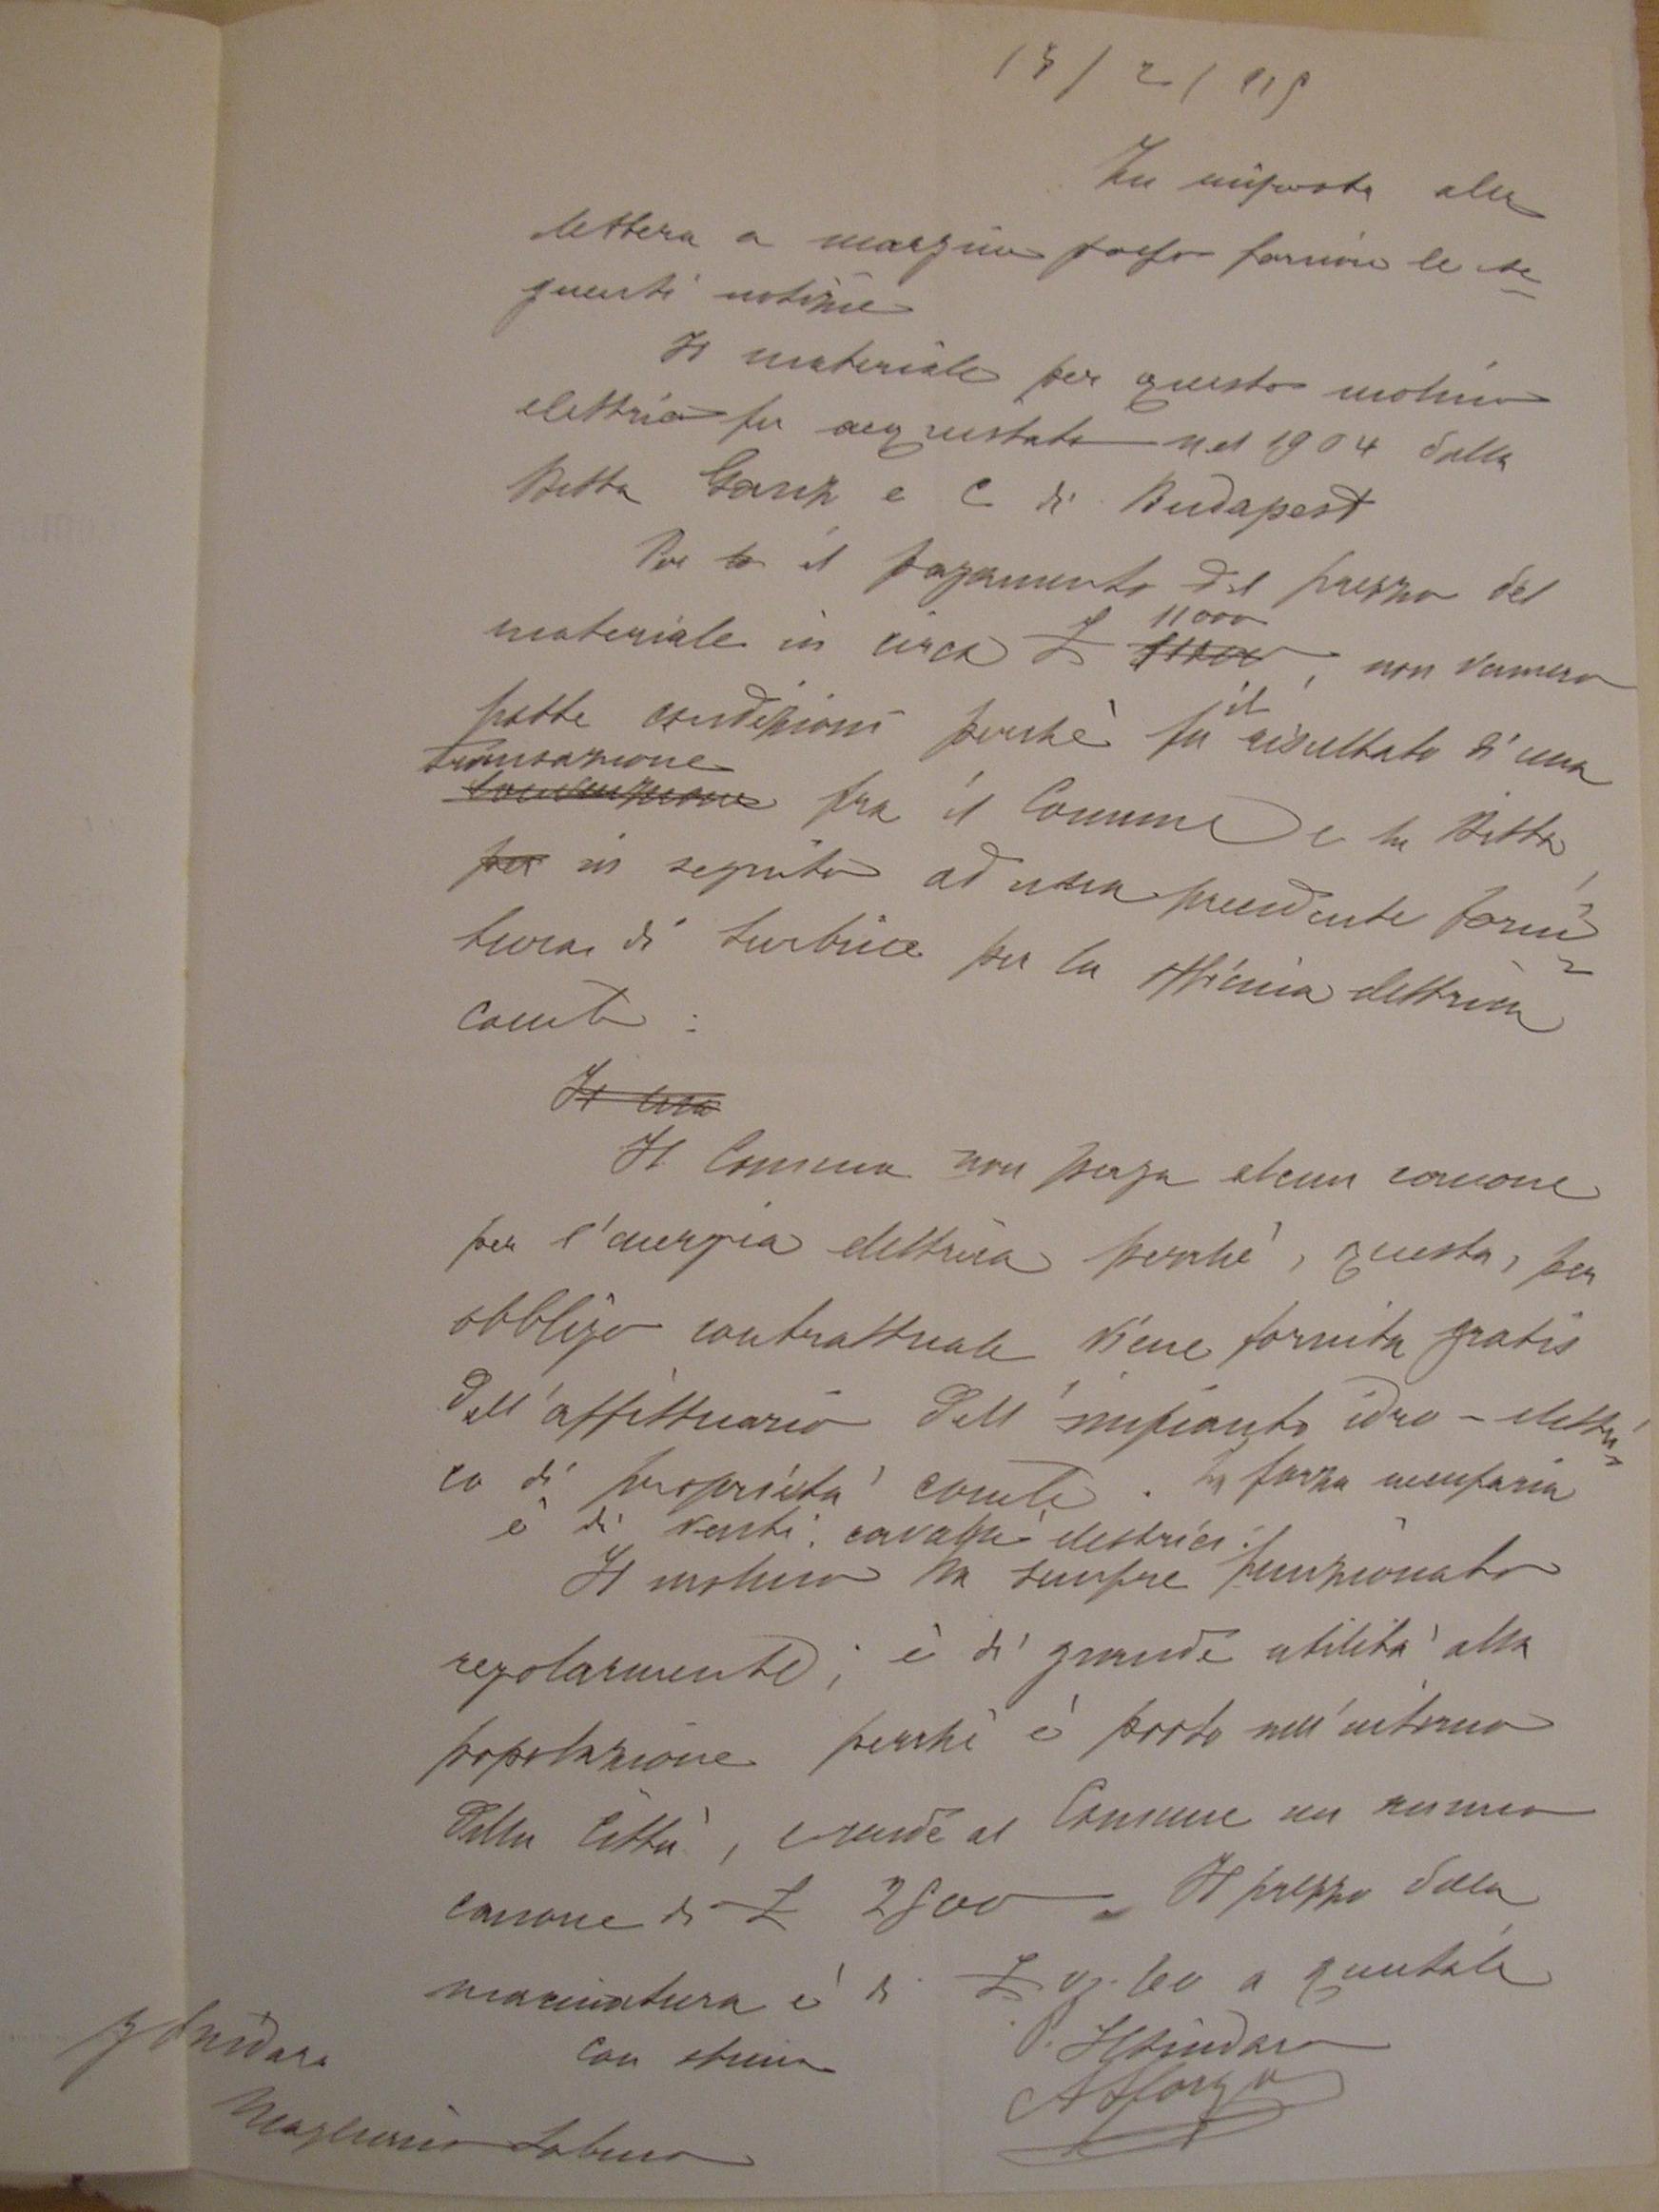 13/2/915
In risposta alla
lettera a margine posso fornire le se
guenti notizie
Il materiale per questo molino
elettrico fu acquistato nel 1904 dalla
Ditta Ganz e C di Budapest
Per lo il pagamento del prezzo del
materiale in circa £ 11000, non vennero
fatte condizioni perchè fu il risultato di una
transazione
fra il Comune e la Ditta,
per in seguito ad una precedente forni
tura di turbine per la officina elettrica
comle:
Il
Il Comune non paga alcun canone
per l'energia elettrica perchè, questa, per
obbligo contrattuale viene fornita gratis
dall'affittuario dell'impianto idro-elettri
co di proprietà comle. La forza necessaria
è di venti cavalli elettrici.
Il molino ha sempre funzionato
regolarmente; è di grande utilità alla
popolazione perchè è posto nell'interno
della città, e rende al Comune un annuo
canone di £ 2500. Il prezzo della
macinatura è di £ 0,60 a quintale
Con stima
P. Il Sindaco
Sindaco
Magliano Sabino